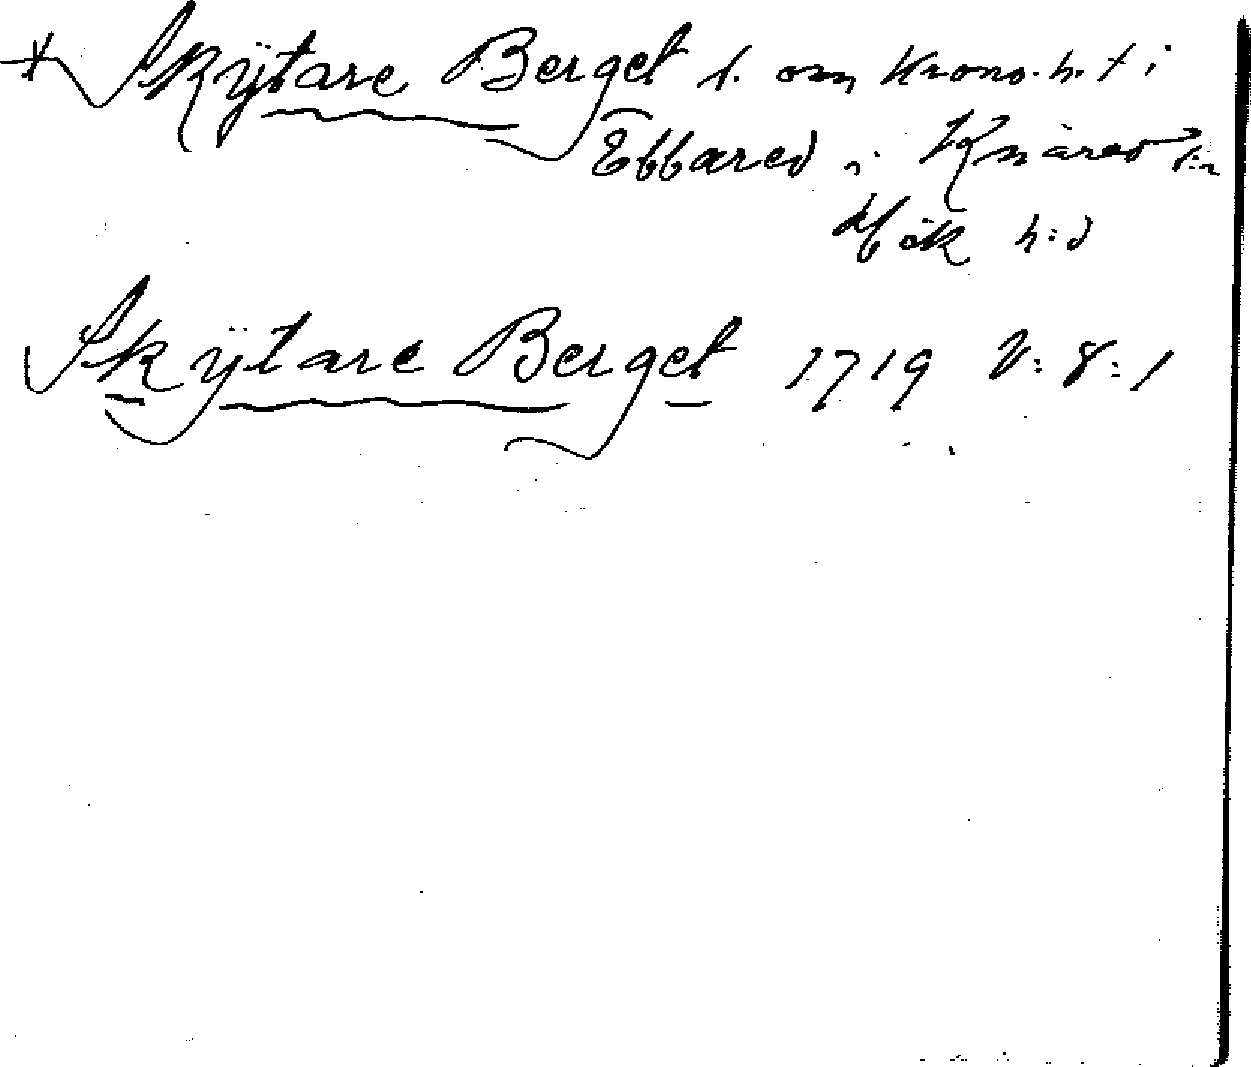 Skÿtare Berget t. om Krono.h.t i
Ebbared i Knäred s:n
Hök h:d
Skÿtare Berget 1719 V: 8: 1